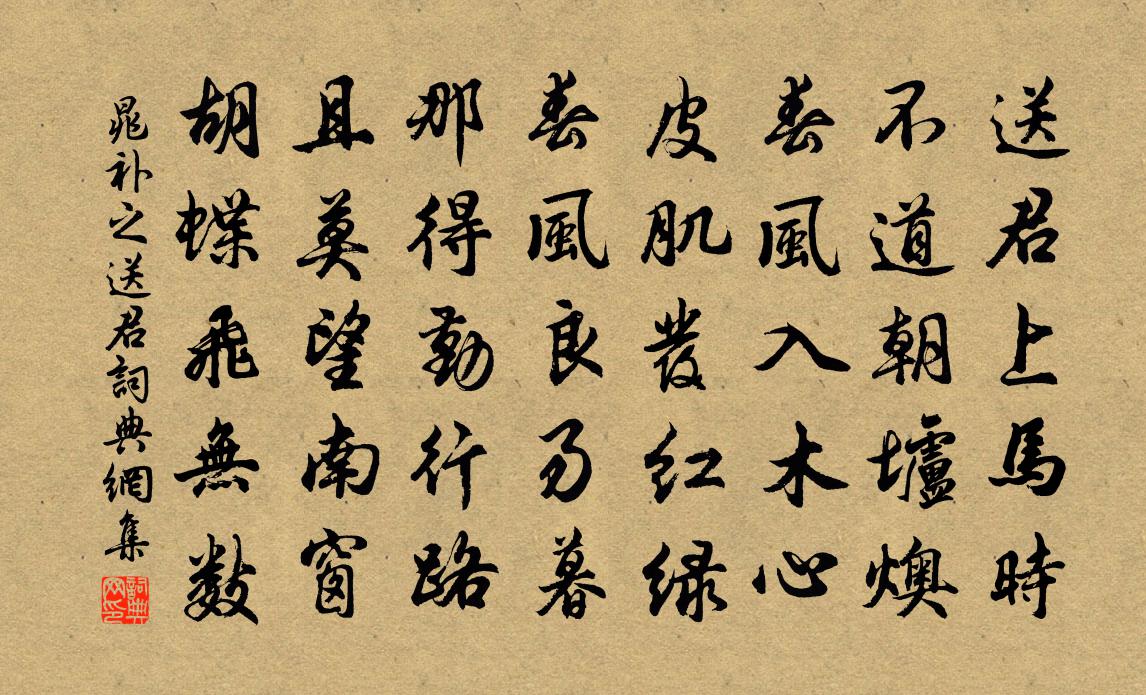 送君上馬時
不道朝壚燠
春風入木心
皮肌發红绿
春風良易暮
那得勤行路
且莫望南窗
胡蝶飛無数
晁补之送君詞典網集
詞典网印